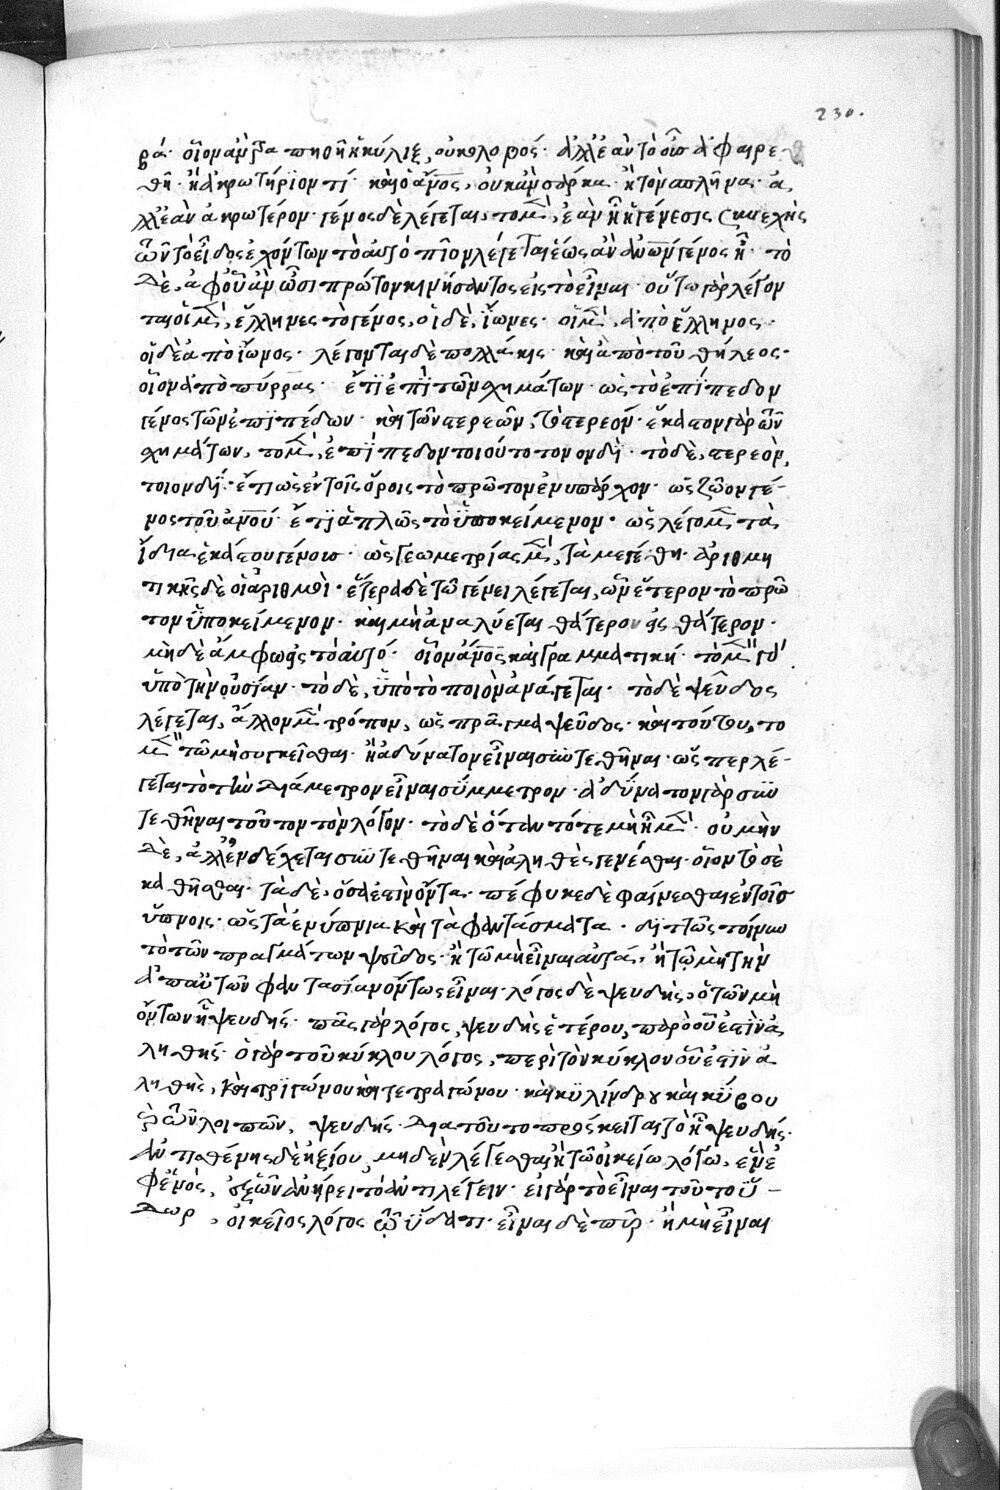 230.
ρά· οἷον ἂν τρυπηθῆ ἡ κύλιξ, οὐ κολοβός· ἀλλ' ἐὰν τὸ οὖς ἀφαιρε
θῆ· ἢ ἀκρωτήριόν τι· καὶ ὁ ἄνος, οὐκ ἂν σάρκα· ἢ τὸν σπλῆνα· ἀ
λλ' ἐὰν ἀκρωτέρον· γένος δὲ λέγεται, τὸ μὲν, ἐὰν ἢ ἡ γένεσις συνεχὴς
τῶν τὸ εἶδος ἐχόντων τὸ αὐτό· οἷον λέγεται ἕως ἂν ἀνων γένος ἦ· τὸ
δὲ, ἀφ' οὗ ἂν ὦσι πρώτου κινήσαντος εἰς τὸ εἶναι· οὕτω γὰρ λέγον
ται οἱ μὲν, ἕλληνες τὸ γένος, οἱ δὲ, ἴωνες· οἱ μὲν, ἀπὸ ἕλληνος·
οἱ δὲ ἀπὸ ἴωνος· λέγονται δὲ πολλάκις· καὶ ἀπὸ τοῦ θήλεος·
οἷον ἀπὸ πύρρας· ἔτι ἐπὶ τῶν σχημάτων· ὡς τὸ ἐπίπεδον
γένος τῶν ἐπιπέδων· καὶ τῶν στερεῶν, τὸ στερεόν· ἕκαστον γὰρ τῶν
σχημάτων, τὸ μὲν, ἐπίπεδον τοιοῦτο τονονδή· τὸ δὲ, στερεὸν,
τοιονδή· ἔτι ὡς ἐν τοῖς ὅροις τὸ πρῶτον ἐνυπάρχον· ὡς ζῶον γέ-
νος τοῦ ἀνου· ἔτι ἁπλῶς τὸ ὑποκείμενον· ὡς λέγομεν τὰ
ἴδια ἑκάστου γένους· ὡς γεωμετρίας μὲν, τὰ μεγέθη· ἀριθμη
τικῆς δὲ οἱ ἀριθμοὶ· ἕτερα δὲ τῶ γένει λέγεται, ὧν ἕτερον τὸ πρῶ
τον ὑποκείμενον· καὶ μὴ ἀναλύεται θάτερον εἰς θάτερον·
μηδὲ ἄμφω εἰς τὸ αὐτό· οἷον ἄνος καὶ γραμματική· τὸ μὲν γὰρ
ὑπὸ τὴν οὐσίαν· τὸ δὲ, ὑπὸ τὸ ποιὸν ἀνάγεται· τὸ δὲ ψεῦδος
λέγεται, ἄλλον μὲν τρόπον, ὡς πρᾶγμα ψεῦδος· καὶ τούτου, τὸ
μὲν τῶ μὴ συγκεῖσθαι· ἢ ἀδύνατον εἶναι συντεθῆναι· ὥσπερ λέ-
γεται τὸ τὴν διάμετρον εἶναι σύμμετρον· ἀδύνατον γὰρ συν
τεθῆναι τοῦτον τὸν λόγον· τὸ δὲ ὅταν τότε μὴ ἦ μὲν· οὐ μὴν
δὲ, ἀλλ' ἐνδέχεται συντεθῆναι καὶ ἀληθὲς γενέσθαι· οἷον τὸ σὲ
καθῆσθαι· τὰ δὲ, ὅσα ἐστὶν ὄντα· πέφυκε δὲ φαίνεσθαι ἐν τοῖς
ὕπνοις· ὡς τὰ ἐνύπνια καὶ τὰ φαντάσματα· διττῶς τοίνυν
τὸ τῶν πραγμάτων ψεῦδος· ἢ τῶ μὴ εἶναι αὐτά, ἢ τῶ μὴ τὴν
ἀπ' αὐτῶν φαντασίαν ὄντως εἶναι· λόγος δὲ ψευδὴς, ὁ τῶν μὴ
ὄντων ἢ ψευδής· πᾶς γὰρ λόγος, ψευδὴς ἑτέρου, παρ' ὃ οὗ ἐστὶν ἀ
ληθής· ὁ γὰρ τοῦ κύκλου λόγος, περὶ τὸν κύκλον οὗ ἐστὶν ἀ
ληθὴς, καὶ τριγώνου καὶ τετραγώνου· καὶ κυλίνδρου καὶ κύβου
καὶ τῶν λοιπῶν, ψευδής· διὰ τοῦτο πρόσκειται τὸ ἢ ψευδής·
ἀντισθένης δὲ ἠξίου, μηδὲν λέγεσθαι ἢ τῶ οἰκείω λόγω, ἓν ἐ
φ' ἑνὸς, ἐξ ὧν ἀνήρει τὸ ἀντιλέγειν· εἰ γὰρ τὸ εἶναι τοῦτο ὕ-
δωρ, οἰκεῖος λόγος τῶ ὕδατι· εἶναι δὲ πῦρ· ἢ μὴ εἶναι